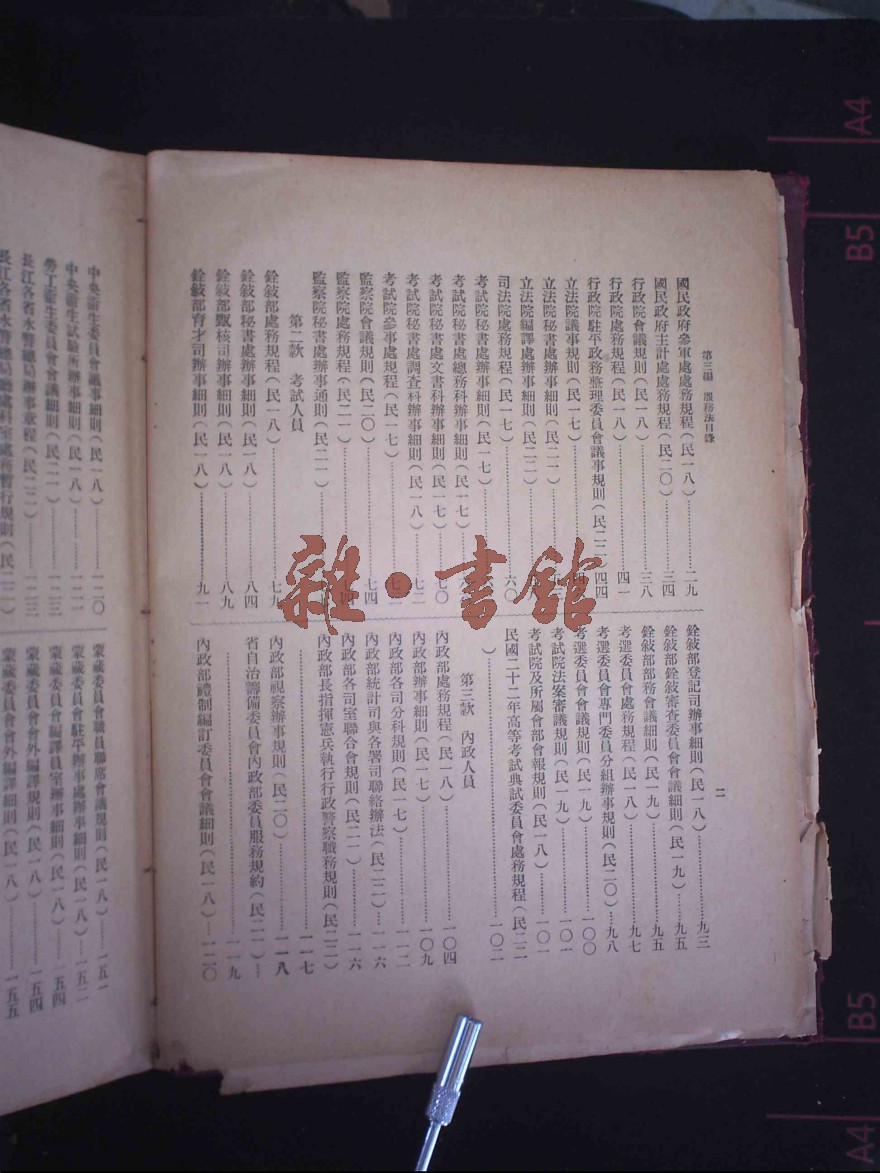 第三編 服務法目錄
二
國民政府參軍處處務規程(民一八)二九
國民政府主計處處務規程(民二〇)三四
行政院會議規則(民一八)三八
行政院處務規程(民一八)四一
行政院駐平政務整理委員會議事規則(民二二)四四
立法院議事規則(民一七)
立法院秘書處辦事細則(民二一)
立法院編譯處辦事細則(民二二)
司法院處務規程(民一七)六〇
考試院秘書處辦事細則(民一七)
考試院秘書處總務科辦事細則(民一七)
考試院秘書處文書科辦事細則(民一七)七〇
考試院秘書處調查科辦事細則(民一八)七二
考試院參事處規程(民一七)
監察院會議規則(民二〇)七四
監察院處務規程(民二一)
監察院秘書處辦事通則(民二一)
第二款 考試人員
銓敍部處務規程(民一八)七九
銓敍部秘書處辦事細則(民一八)八四
銓敍部甄核司辦事細則(民一八)八九
銓敍部育才司辦事細則(民一八)九一
銓敍部登記司辦事細則(民一八)九三
銓敍部銓敍審查委員會會議細則(民一九)九五
銓敍部部務會議細則(民一九)九五
考選委員會處務規程(民一八)九七
考選委員會專門委員分組辦事規則(民二〇)九八
考選委員會會議規則(民一九)一〇〇
考試院法案審議規則(民一九)一〇一
考試院及所屬會部會報規則(民一八)一〇一
民國二十二年高等考試典試委員會處務規程(民二二
)一〇二
第三款 內政人員
內政部處務規程(民一八)一〇四
內政部辦事細則(民一七)一〇九
內政部各司分科規則(民一七)一一二
內政部統計司與各署司聯絡辦法(民二二)一一六
內政部各司室聯合會規則(民二一)一一六
內政部長指揮憲兵執行行政警察職務規則(民二二)
一一七
內政部視察辦事規則(民二〇)一一八
省自治籌備委員會內政部委員服務規約(民二一)
一一九
內政部禮制編訂委員會會議細則(民一八)一二〇
中央衞生委員會會議事細則(民一八)一二〇
中央衞生試驗所辦事細則(民一八)一二一
勞工衞生委員會會議細則(民二一)一二三
長江各省水警總局辦事章程(民二二)一二三
長江各省水警總局各科室處務暫行規則(民二二)
蒙藏委員會職員聯席會議規則(民一八)一五一
蒙藏委員會駐平辦事處辦事細則(民一八)一五二
蒙藏委員會編譯員室辦事細則(民一八)一五四
蒙藏委員會會外編譯規則(民一八)一五四
蒙藏委員會會外編譯細則(民一八)一五五
雜·書館
A4
B5
B5
A4